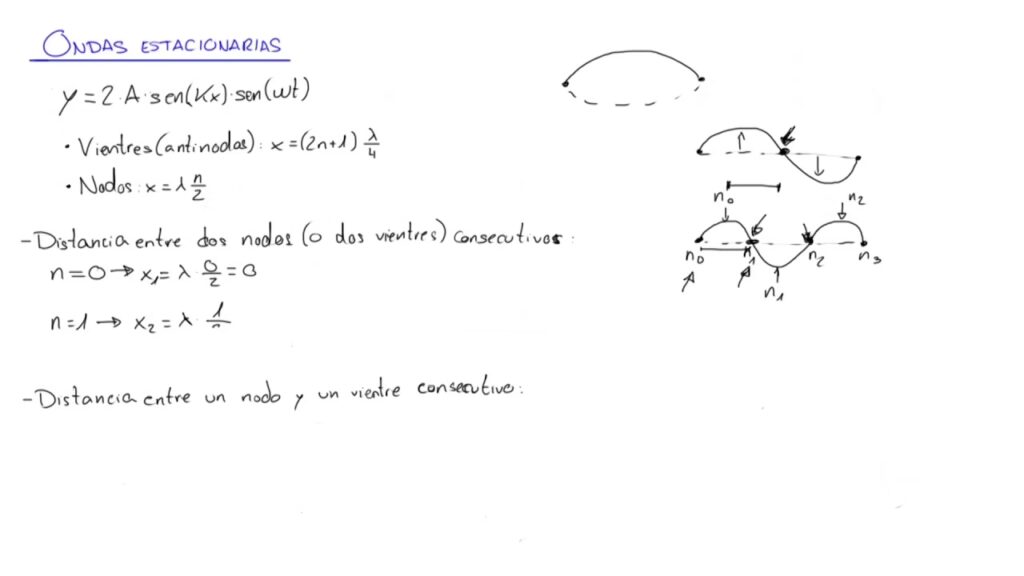 ONDAS ESTACIONARIAS
y = 2·A·sen(Kx)·sen(ωt)
• Vientres (antinodos): x = (2n+1) λ/4
• Nodos: x = λ n/2
n₀ n₂
- Distancia entre dos nodos (o dos vientres) consecutivos:
n₀ n₁ n₂ n₃
n = 0 → x₁ = λ · 0/2 = 0
n₁
n = 1 → x₂ = λ · 1/
- Distancia entre un nodo y un vientre consecutivo: